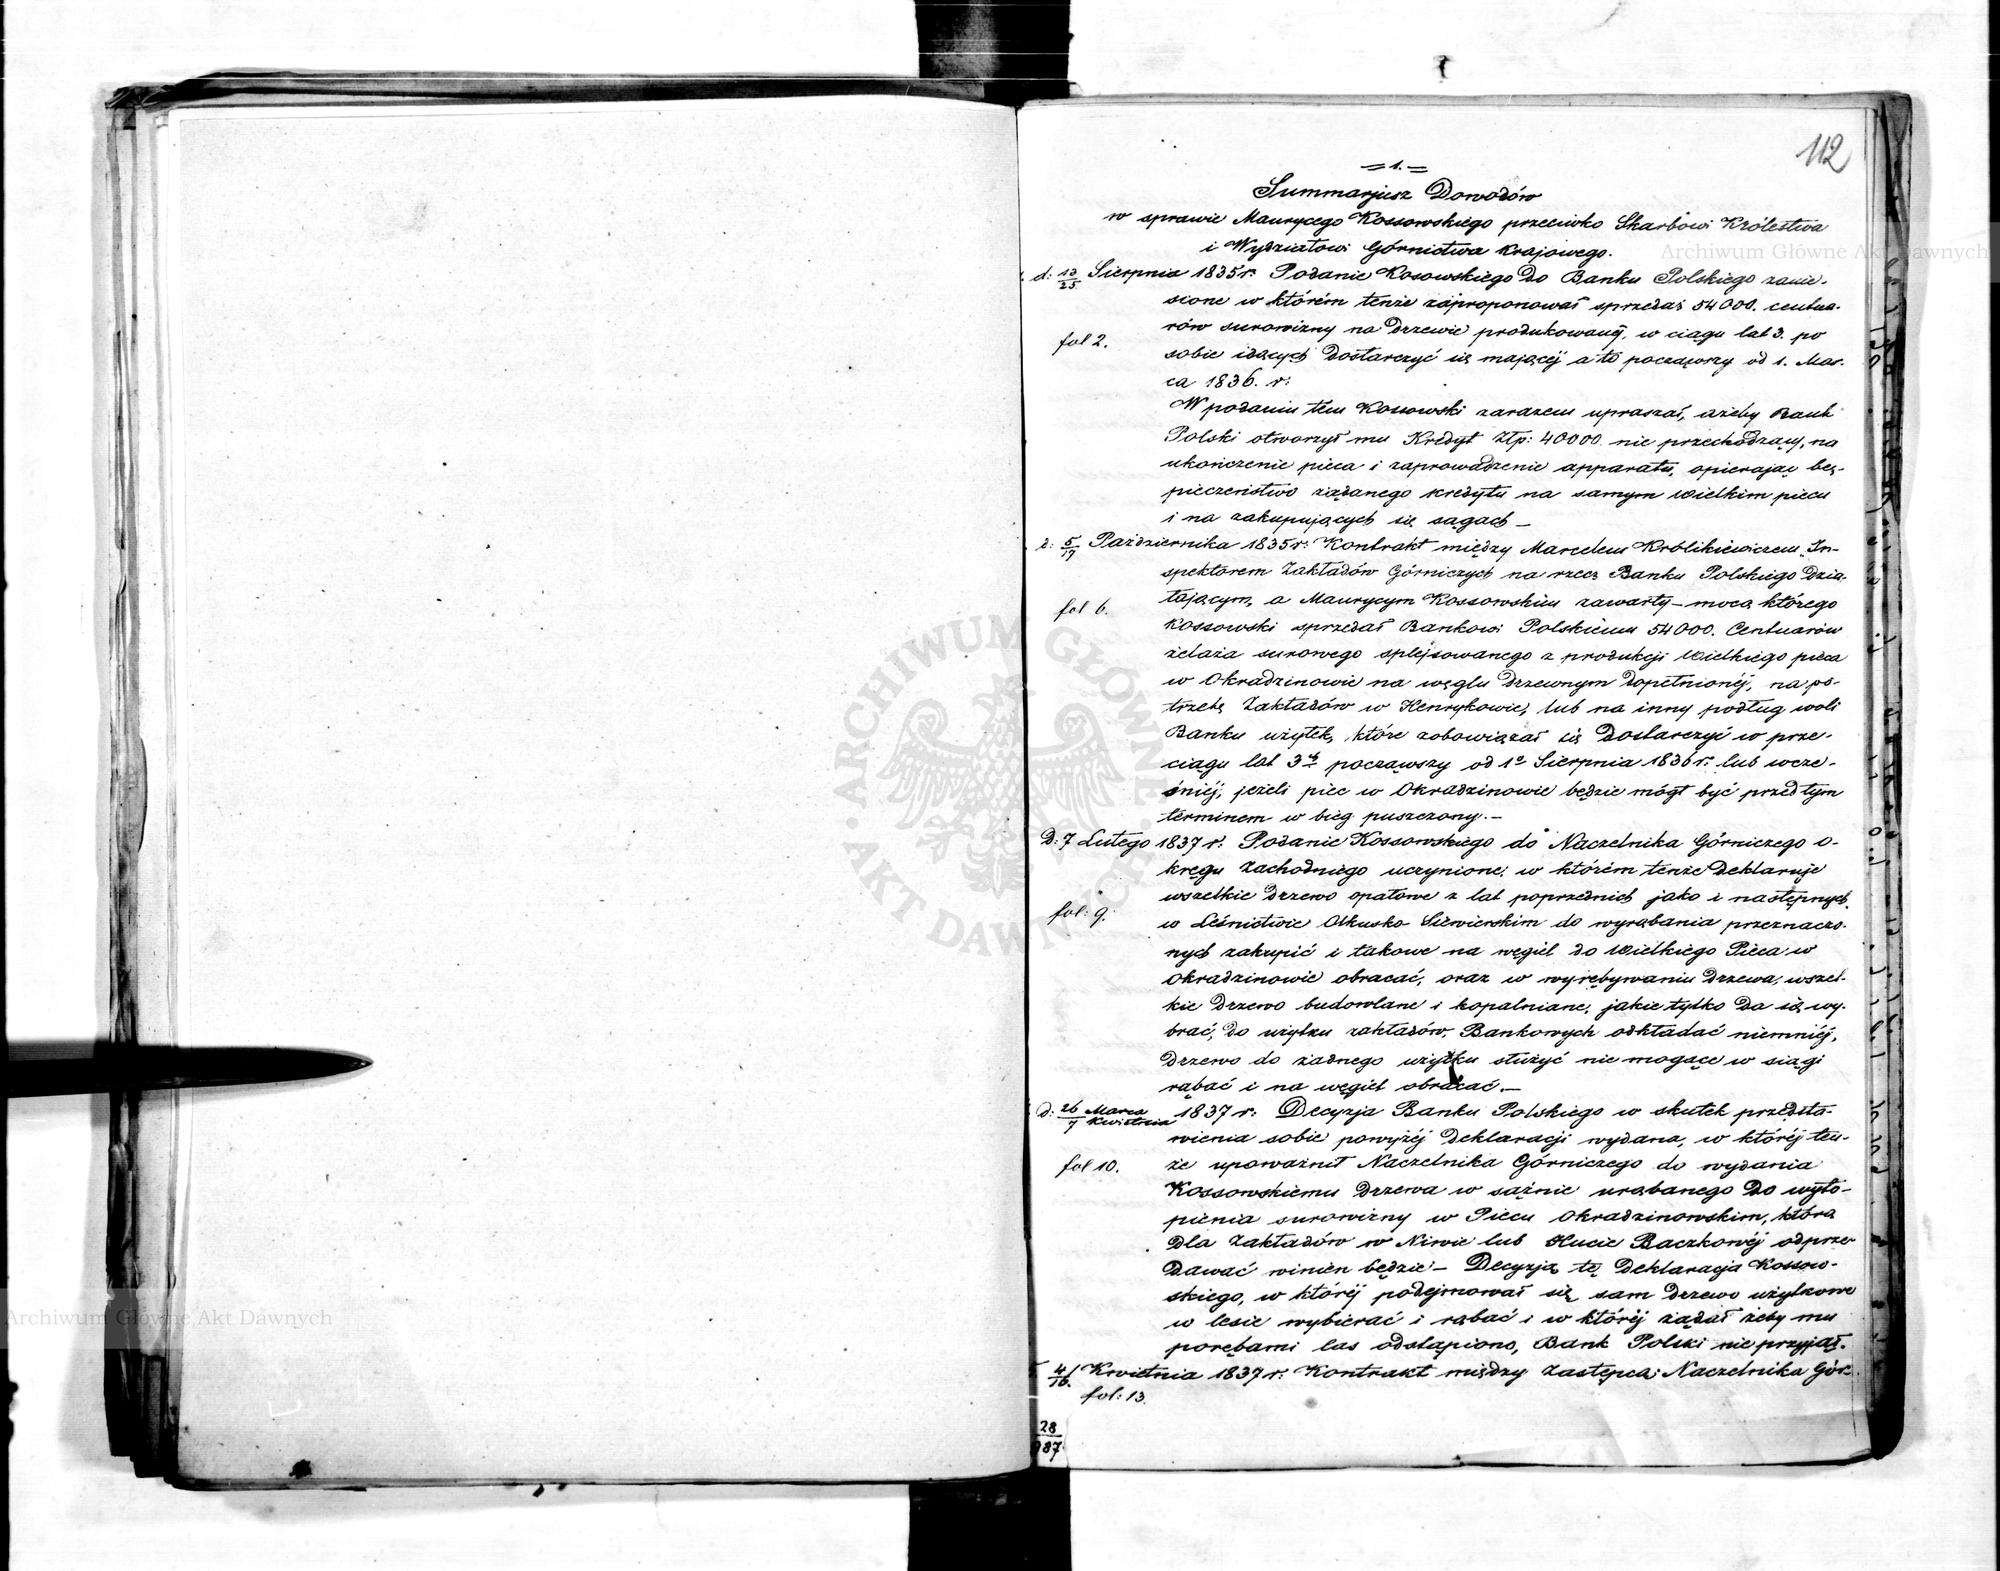 112
= 1. =
Summarjusz Dowodów
w sprawie Maurycego Kossowskiego przeciwko Skarbowi Królestwa
i Wydziałowi Górnictwa Krajowego.
d: 13/25 Sierpnia 1835 r: Podanie Kosowskiego Do Banku Polskiego zanie-
sione w którém tenże zaproponował sprzedaż 54000. centna-
rów surowizny na Drzewie produkowanéj, w ciągu lat 3. po
fol 2.
sobie idących Dostarczyć się mającéj a to począwszy od 1. Mar-
ca 1836. r:
W podaniu tem Kossowski zarazem upraszał, ażeby Bank
Polski otworzył mu Kredyt Złp: 40000 nie przechodzący, na
ukończenie pieca i zaprowadzenie apparatu, opierając bez-
pieczeństwo żądanego kredytu na samym Wielkim piecu
i na zakupujących się sągach –
d: 5/17 Października 1835 r: Kontrakt między Marcelem Królikiewiczem In-
spektorem Zakładów Górniczych na rzecz Banku Polskiego Dzia-
łającym, a Maurycym Kossowskim zawarty – mocą którego
fol 6.
Kossowski sprzedał Bankowi Polskiemu 54000. Centnarów
żelaza surowego splejsowanego z produkcji Wielkiego pieca
w Okradzinowie na węglu Drzewnym Dopełnionéj, na po-
trzebę Zakładów w Henrykowie, lub na inny podług woli
Banku użytek, które zobowiązał się Dostarczyć w prze-
ciągu lat 3ch począwszy od 1o Sierpnia 1836 r: lub wcze-
śniéj, jeżeli piec w Okradzinowie będzie mógł być przed tym
terminem w bieg puszczony. –
D: 7 Lutego 1837 r: Podanie Kossowskiego do Naczelnika Górniczego O-
kręgu Zachodniego uczynione, w którém tenże Deklaruje
wszelkie Drzewo opałowe z lat poprzednich jako i następnych,
fol: 9.
w Leśnictwie Olkusko Siewierskim do wyrąbania przeznaczo-
nych zakupić i takowe na węgiel do Wielkiego Pieca w
Okradzinowie obracać, oraz w wyrębywaniu Drzewa, wszel-
kie Drzewo budowlane i kopalniane, jakie tylko Da się wy-
brać, Do użytku zakładów Bankowych odkładać niemniéj,
Drzewo do żadnego użytku służyć nie mogące w siągi
rąbać i na węgiel obracać. –
d: 26 Marca/7 Kwietnia 1837 r: Decyzja Banku Polskiego w skutek przedsta-
wienia sobie powyżéj Deklaracji wydana, w któréj ten-
fol 10.
że upoważnił Naczelnika Górniczego do wydania
Kossowskiemu Drzewa w sążnie urąbanego Do wyto-
pienia surowizny w Piecu Okradzinowskim, którą
Dla Zakładów w Niwie lub Hucie Baczkowéj odprze-
Dawać winien będzie – Decyzją tę Deklaracja Kossow-
skiego, w któréj podejmował się sam Drzewo użytkowe
w lesie wybierać i rąbać i w któréj żądał żeby mu
porębami las odstąpiono, Bank Polski nie przyjął.
4/16. Kwietnia 1837 r: Kontrakt między Zastępcą Naczelnika Gór-
fol: 13.
28
87
Archiwum Główne Akt Dawnych
Archiwum Główne Akt Dawnych
ARCHIWUM GŁÓWNE AKT DAWNYCH